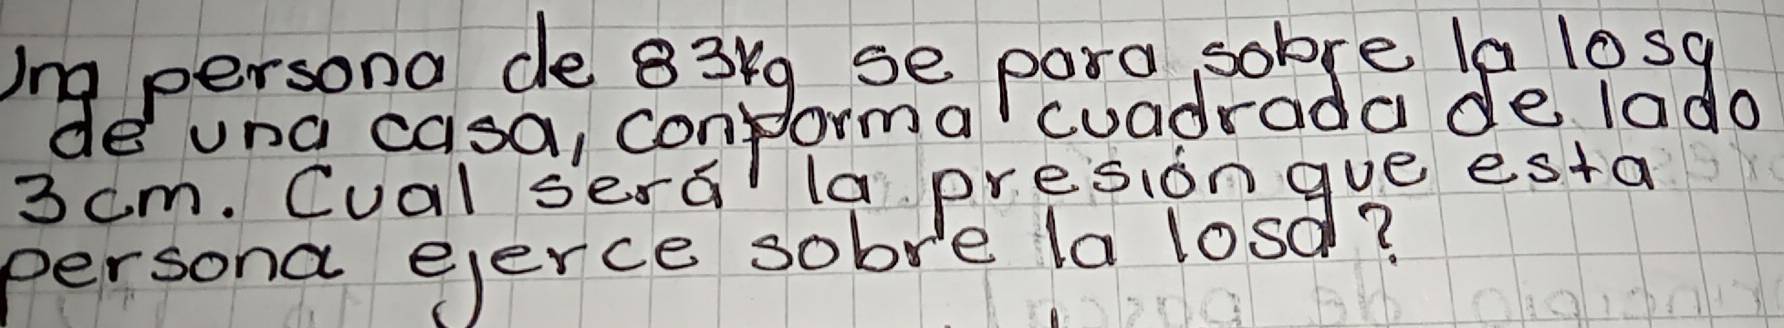 Una persona de 83kg se para sobre la losa
de una casa, con forma cuadrada de lado
3cm. Cual será la presión que esta
persona ejerce sobre la losa?